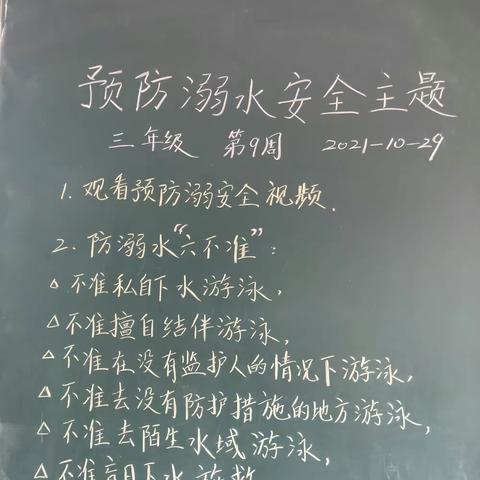 预防溺水安全主题
三年级 第9周 2021-10-29
1. 观看预防溺安全视频.
2. 防溺水“六不准”：
△ 不准私自下水游泳，
△ 不准擅自结伴游泳，
△ 不准在没有监护人的情况下游泳，
△ 不准去没有防护措施的地方游泳，
△ 不准去陌生水域游泳，
△ 不准盲目下水施救